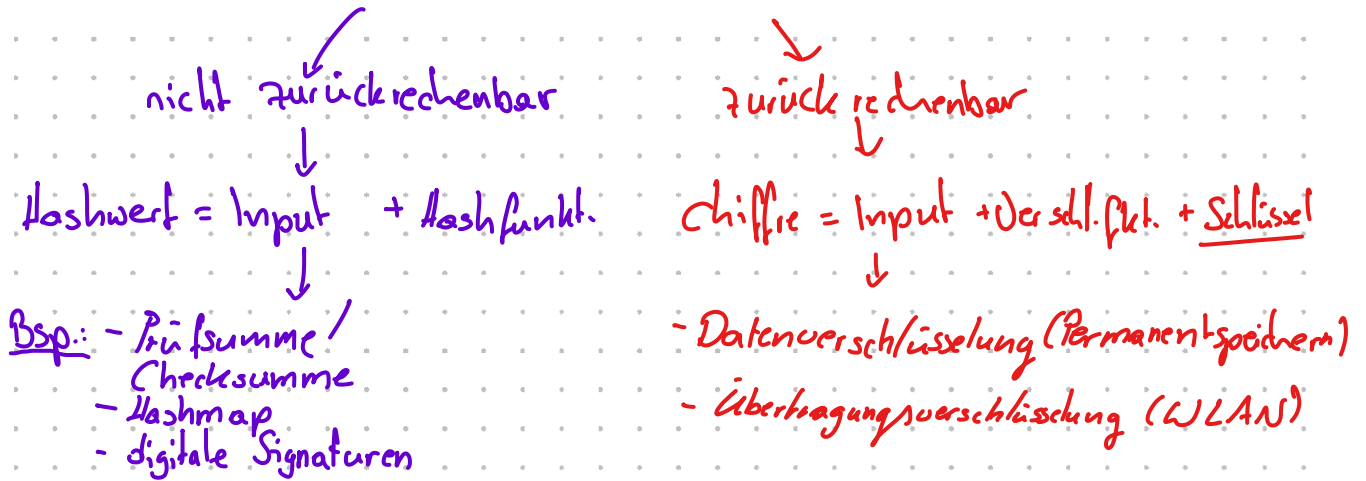 nicht zurückrechenbar
Hashwert = Input + Hashfunkt.
Bsp.: - Prüfsumme /
Checksumme
- Hashmap
- digitale Signaturen
zurückrechenbar
Chiffre = Input + Verschl.fkt. + Schlüssel
- Datenverschlüsselung (Permanentspeichern)
- Übertragungsverschlüsselung (WLAN)